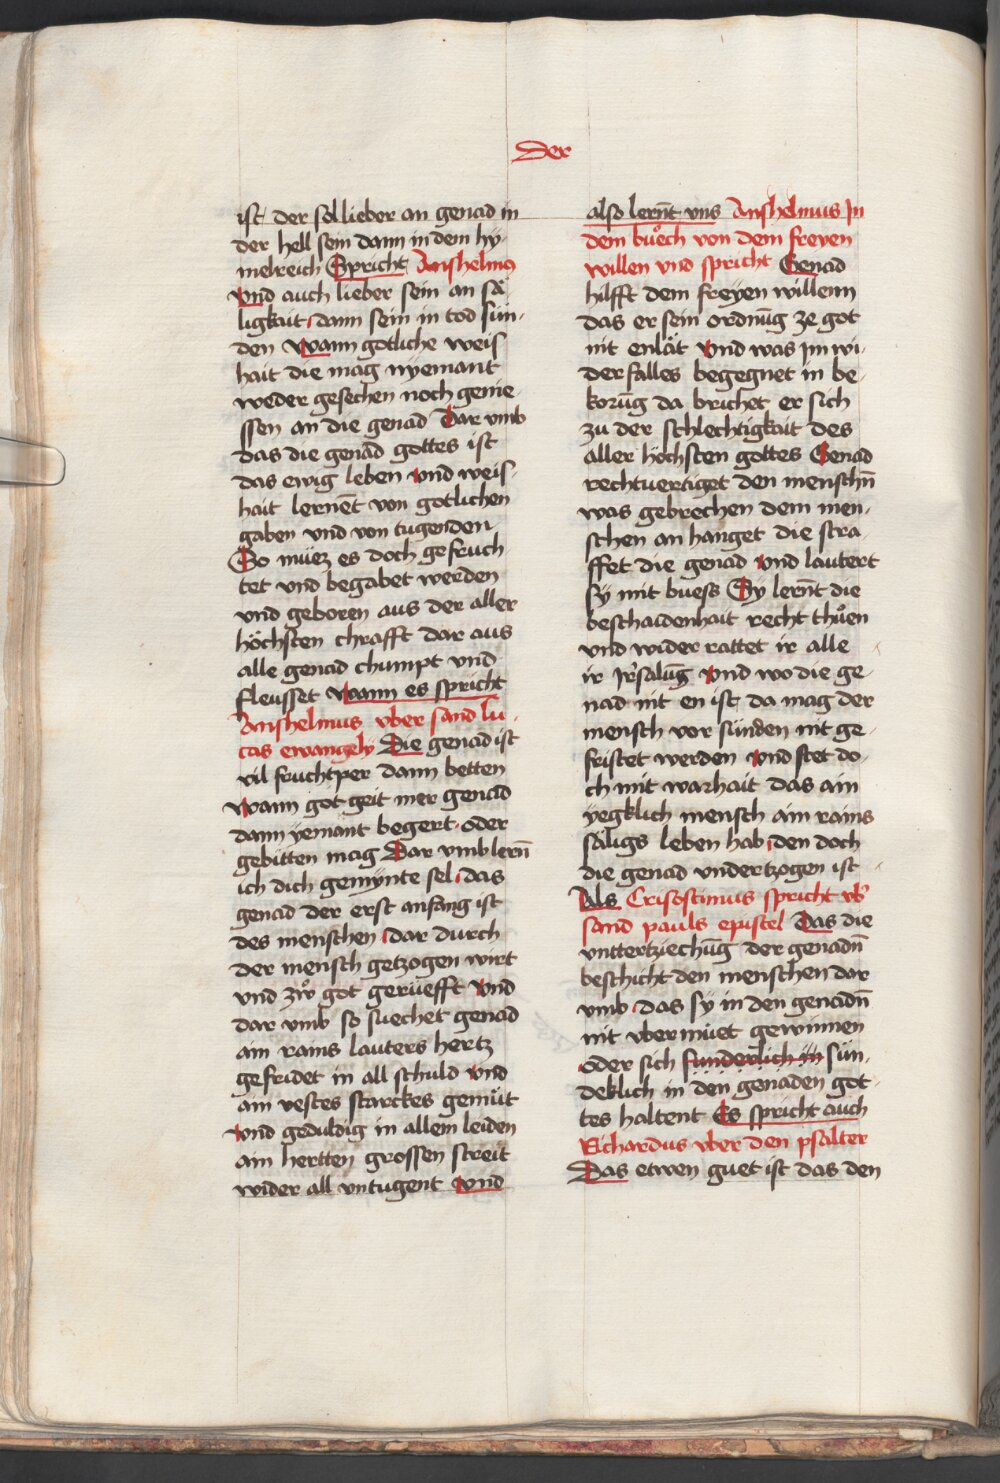 Der
ist der sol lieber an genad in
der hell sein dann in dem hy-
melreich Spricht Anshelmus
Vnd auch lieber sein an sä-
ligkait dann sein in tod sün-
den Wann gotliche weis-
hait die mag nyemant
weder gesechen noch genie-
ssen an die genad Dar vmb
das die genad gottes ist
das ewig leben Vnd weis-
hait lernet von gotlichen
gaben vnd von tugenden
So müez es doch gefruch-
tet vnd begabet werden
vnd geboren aus der aller
höchsten chrafft dar aus
alle genad chumpt vnd
fleusset Wann es spricht
Anshelmus vber sand lu-
cas ewangely Die genad ist
vil fruchtper dann betten
Wann got geit mer genad
dann yemant begert oder
gebitten mag Dar vmb lern̄
ich dich gemynte sel das
genad der erst anfang ist
des menschen dar durch
der mensch getzogen wirt
vnd zů got gerüefft Vnd
dar vmb so suechet genad
ain rains lauters hertz
gefridet in all schuld Vnd
ain vestes starckes gemüt
Vnd geduldig in allem leiden
ain hertten grossen streit
wider all vntugent Vnd
also lernt̄ vns Anshelmus Jn
dem buͦch von dem freyen
willen vnd spricht Genad
hilfft dem freyen willenn
das er sein ordnūg ze got
nit enlät Vnd was jm wi-
der falles begegnet in be-
korūg da brichet er sich
zu der schlechtigkait des
aller höchsten gottes Genad
rechtuertiget den menschn̄
was gebrechen dem men-
schen an hanget die stra-
ffet die genad Vnd lautert
sy mit buess Sy lernt̄ die
beschaidenhait recht thuͦen
vnd wider rattet ir alle
ir jrsalūg Vnd wo die ge-
nad nit en ist da mag der
mensch vor sünden nit ge-
fristet werden Vnd stet do-
ch mit warhait das ain
yegklich mensch ain rains
säligs leben hab den doch
die genad vndertzogen ist
Als Crisostimus spricht vb̾
sand pauls epistel Das die
vnttertziechūg der genadn̄
beschicht den menschen dar
vmb das sy in den genadn̄
nit vbermüet gewinnen
oder sich sunderlich in sün-
deklich in den genaden got-
tes haltent Es spricht auch
Echardus vber den psalter
Das etwen guet ist das den